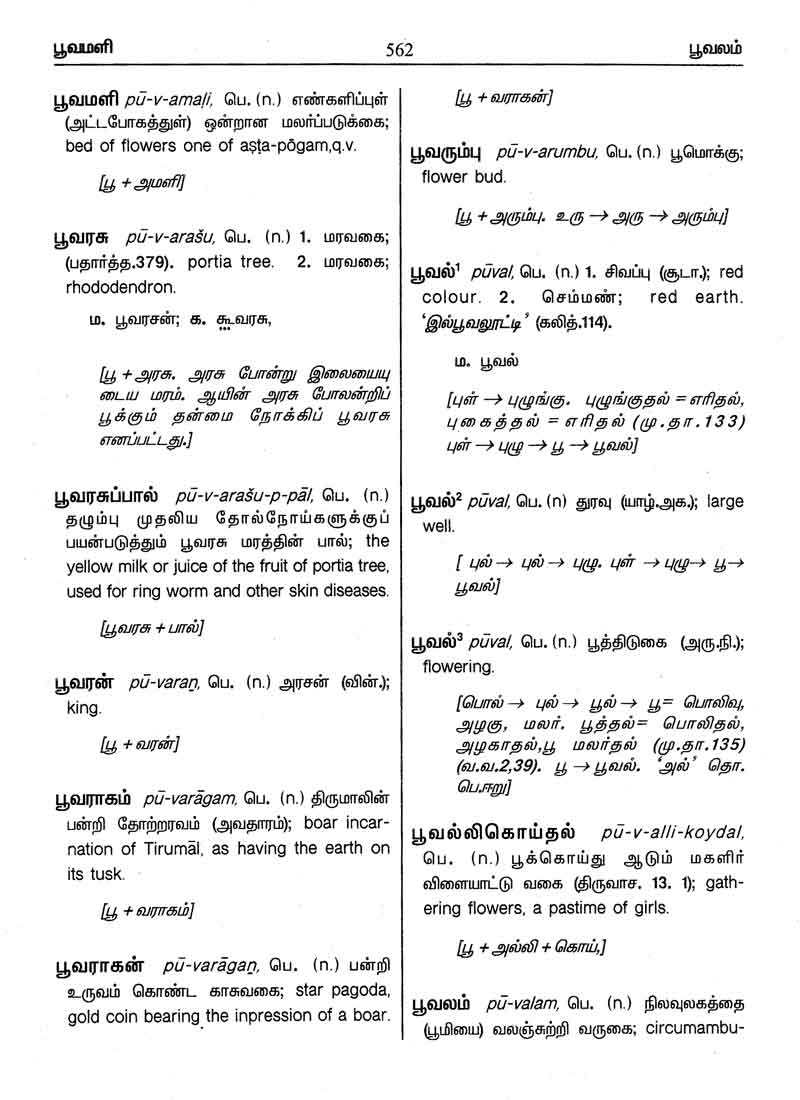 பூவமளி 562 பூவலம்
பூவமளி pū-v-amaḷi, பெ. (n.) எண்களிப்புள்
(அட்டபோகத்துள்) ஒன்றான மலர்ப்படுக்கை;
bed of flowers one of aṣṭa-pōgam,q.v.
[பூ + அமளி]
பூவரசு pū-v-arašu, பெ. (n.) 1. மரவகை;
(பதார்த்த.379). portia tree. 2. மரவகை;
rhododendron.
ம. பூவரசன்; க. கூவரசு,
[பூ + அரசு. அரசு போன்று இலையையு
டைய மரம். ஆயின் அரசு போலன்றிப்
பூக்கும் தன்மை நோக்கிப் பூவரசு
எனப்பட்டது.]
பூவரசுப்பால் pū-v-arašu-p-pāl, பெ. (n.)
தழும்பு முதலிய தோல்நோய்களுக்குப்
பயன்படுத்தும் பூவரசு மரத்தின் பால்; the
yellow milk or juice of the fruit of portia tree,
used for ring worm and other skin diseases.
[பூவரசு + பால்]
பூவரன் pū-varaṉ, பெ. (n.) அரசன் (வின்.);
king.
[பூ + வரன்]
பூவராகம் pū-varāgam, பெ. (n.) திருமாலின்
பன்றி தோற்றரவம் (அவதாரம்); boar incar-
nation of Tirumāl, as having the earth on
its tusk.
[பூ + வராகம்]
பூவராகன் pū-varāgaṉ, பெ. (n.) பன்றி
உருவம் கொண்ட காசுவகை; star pagoda,
gold coin bearing the inpression of a boar.
[பூ + வராகன்]
பூவரும்பு pū-v-arumbu, பெ. (n.) பூமொக்கு;
flower bud.
[பூ + அரும்பு. உரு → அரு → அரும்பு]
பூவல்¹ pūval, பெ. (n.) 1. சிவப்பு (சூடா.); red
colour. 2. செம்மண்; red earth.
‘இல்பூவலூட்டி’ (கலித்.114).
ம. பூவல்
[புள் → புழுங்கு. புழுங்குதல் = எரிதல்,
புகைத்தல் = எரிதல் (மு.தா.133)
புள் → புழு → பூ → பூவல்]
பூவல்² pūval, பெ. (n) துரவு (யாழ்.அக.); large
well.
[ புல் → புல் → புழு. புள் → புழு→ பூ→
பூவல்]
பூவல்³ pūval, பெ. (n.) பூத்திடுகை (அரு.நி.);
flowering.
[பொல் → புல் → பூல் → பூ= பொலிவு,
அழகு, மலர். பூத்தல்= பொலிதல்,
அழகாதல்,பூ மலர்தல் (மு.தா.135)
(வ.வ.2,39). பூ → பூவல். ‘அல்’ தொ.
பெ.ஈறு]
பூவல்லிகொய்தல் pū-v-alli-koydal,
பெ. (n.) பூக்கொய்து ஆடும் மகளிர்
விளையாட்டு வகை (திருவாச. 13. 1); gath-
ering flowers, a pastime of girls.
[பூ + அல்லி + கொய்,]
பூவலம் pū-valam, பெ. (n.) நிலவுலகத்தை
(பூமியை) வலஞ்சுற்றி வருகை; circumambu-